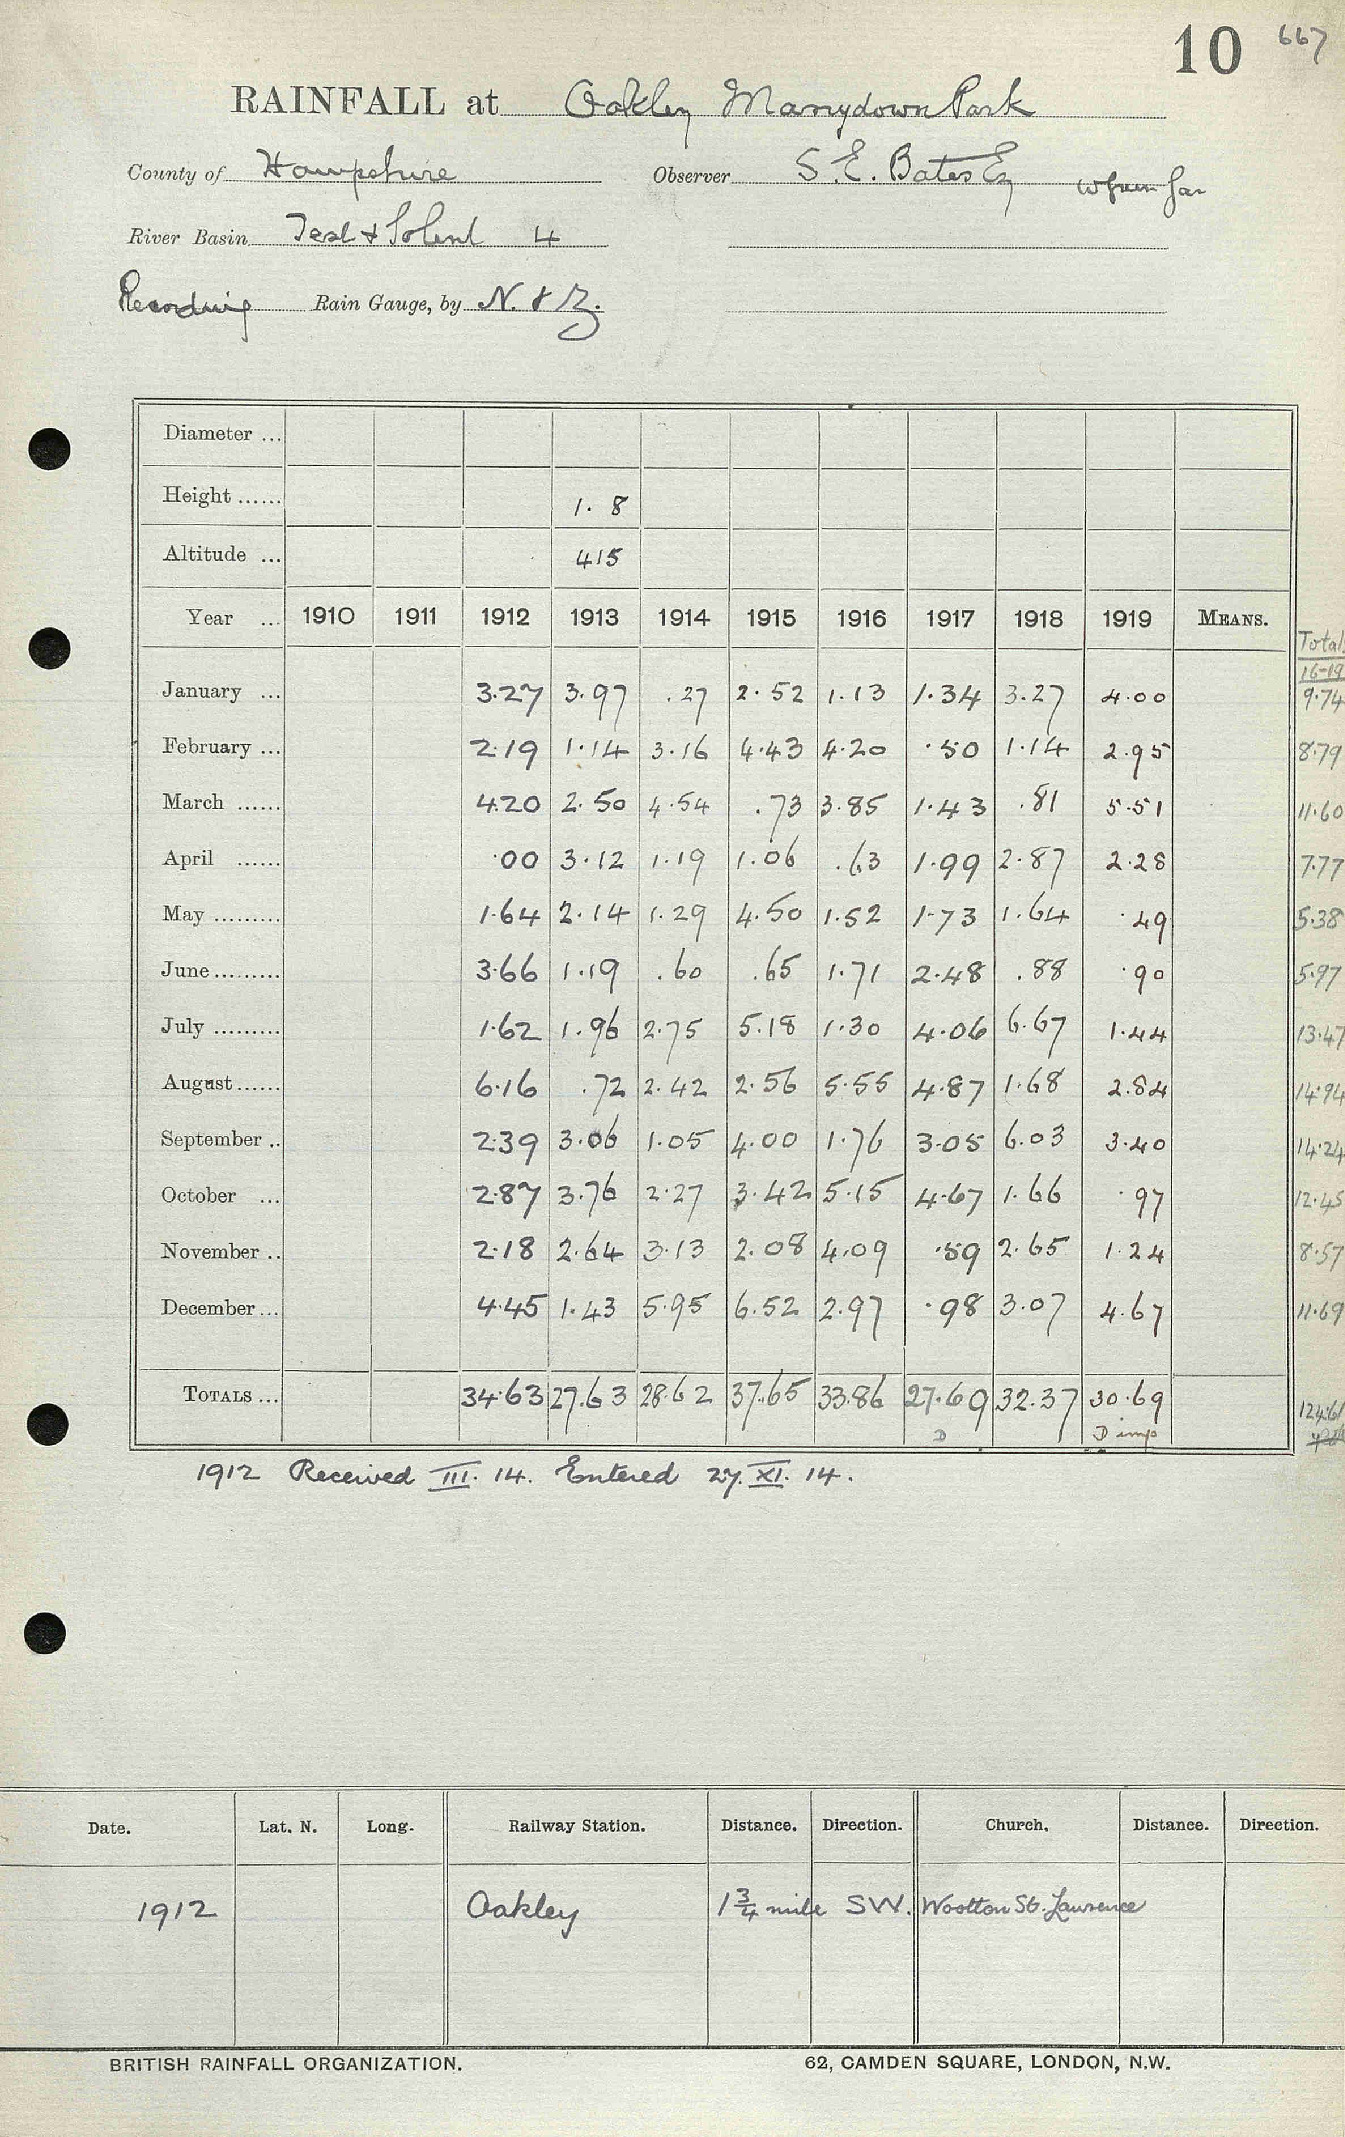 10 667
RAINFALL at Oakley Manydown Park
County of Hampshire Observer S. E. Bates Esq
River Basin Test & Solent 4
Recording Rain Gauge, by N. & Z.
Diameter ...
Height ...... 1. 8
Altitude ... 415
Year ... 1910 1911 1912 1913 1914 1915 1916 1917 1918 1919 MEANS. Totals 16-19
January ... 3.27 3.97 .27 2.52 1.13 1.34 3.27 4.00 9.74
February ... 2.19 1.14 3.16 4.43 4.20 .50 1.14 2.95 8.79
March ...... 4.20 2.50 4.54 .73 3.85 1.43 .81 5.51 11.60
April ...... .00 3.12 1.19 1.06 .63 1.99 2.87 2.28 7.77
May ......... 1.64 2.14 1.29 4.50 1.52 1.73 1.64 .49 5.38
June ......... 3.66 1.19 .60 .65 1.71 2.48 .88 .90 5.97
July ......... 1.62 1.96 2.75 5.18 1.30 4.06 6.67 1.44 13.47
August ...... 6.16 .72 2.42 2.56 5.55 4.87 1.68 2.84 14.94
September .. 2.39 3.06 1.05 4.00 1.76 3.05 6.03 3.40 14.24
October ... 2.87 3.76 2.27 3.42 5.15 4.67 1.66 .97 12.45
November .. 2.18 2.64 3.13 2.08 4.09 .59 2.65 1.24 8.57
December ... 4.45 1.43 5.95 6.52 2.97 .98 3.07 4.67 11.69
TOTALS ... 34.63 27.63 28.62 37.65 33.86 27.69 32.37 30.69 124.61
D D imp
1912 Received III. 14. Entered 27. XI. 14.
Date. Lat. N. Long. Railway Station. Distance. Direction. Church. Distance. Direction.
1912 Oakley 1 3/4 mile SW. Wootton St. Lawrence
BRITISH RAINFALL ORGANIZATION. 62, CAMDEN SQUARE, LONDON, N.W.